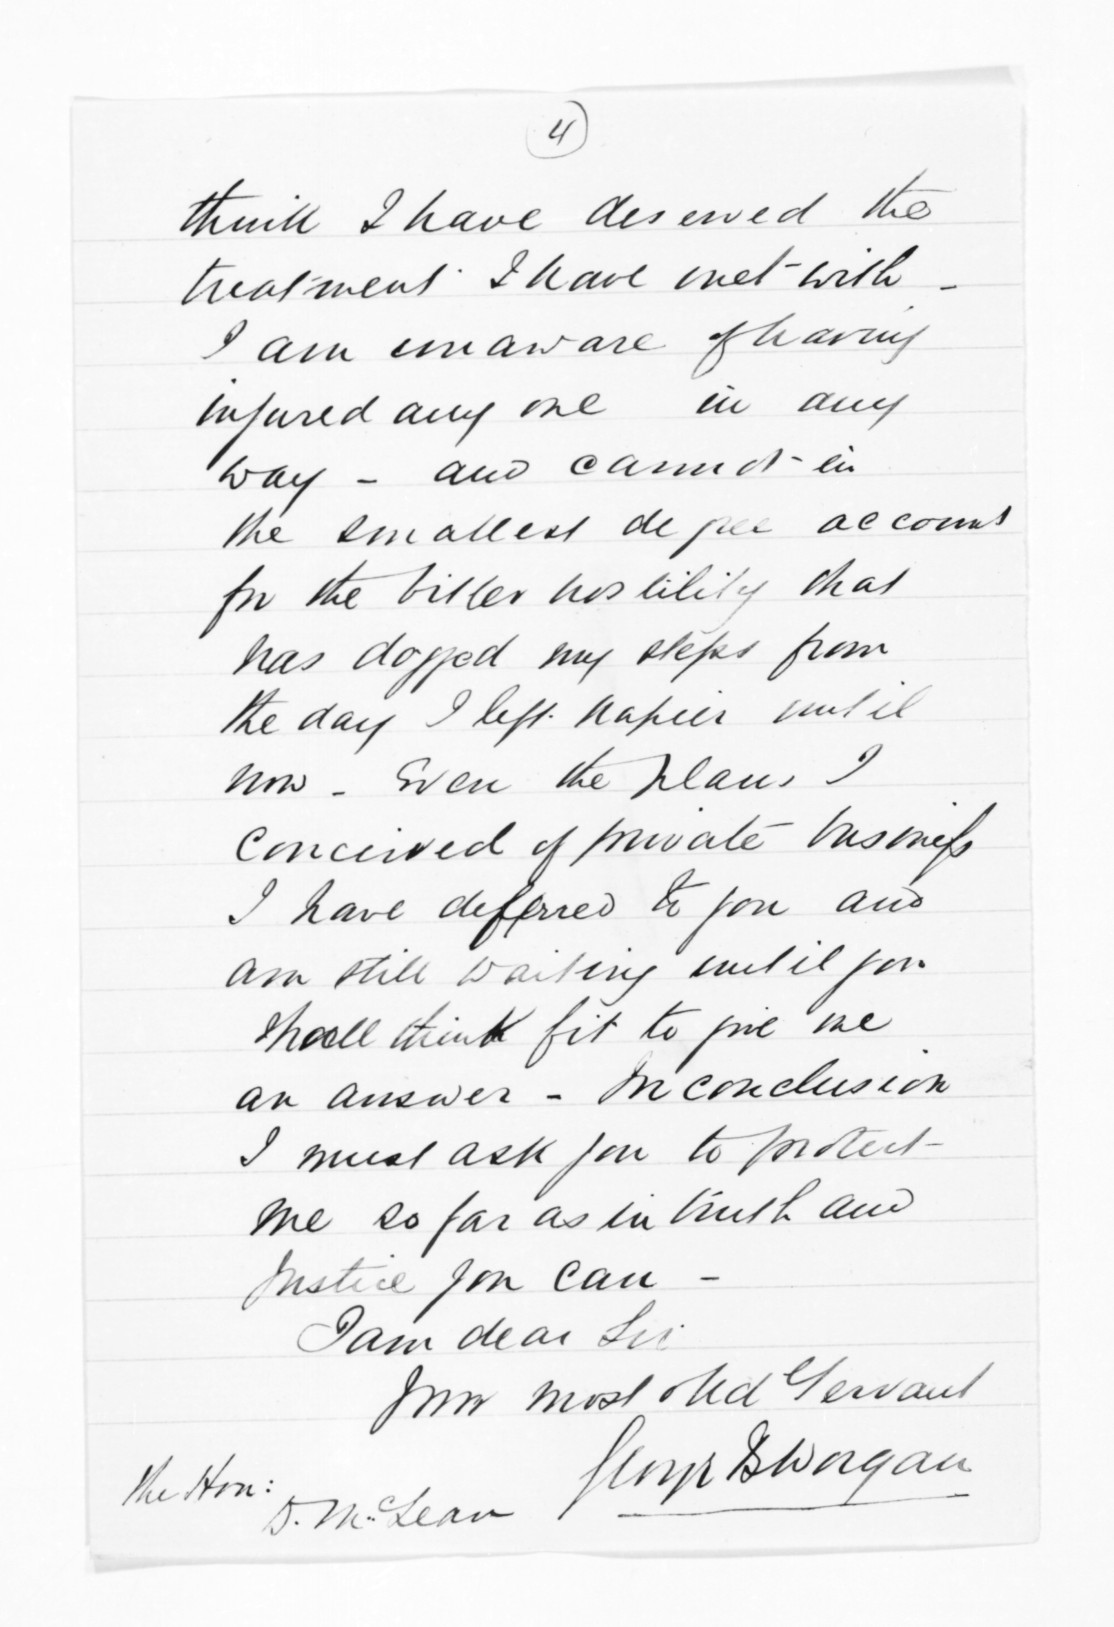 4
think I have deserved the
treatment I have met with -
I am unaware of having
injured any one in any
way - and cannot in
the smallest degree account
for the bitter hostility that
has dogged my steps from
the day I left Napier until
now - Even the plans I
conceived of private business
I have deferred to you and
am still waiting until you
shall think fit to give me
an answer - In conclusion
I must ask you to protect
me so far as in truth and
Justice you can -
I am dear Sir
Your most obed Servant
George B Worgan
The Hon:
D. McLean